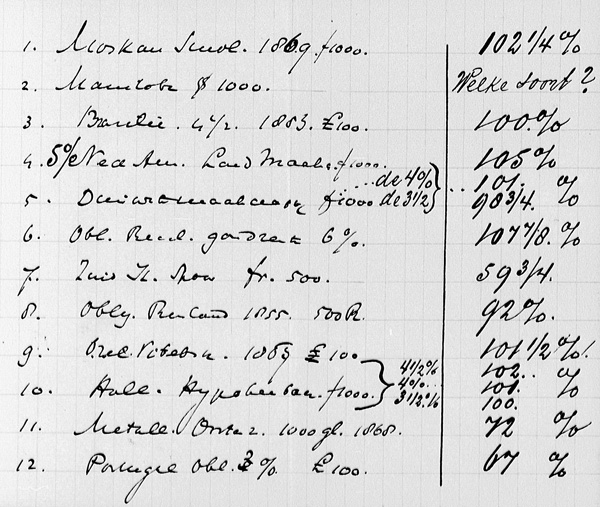 1. Moskau Smol. 1869. f1000. 102 1/4 %
2. Manitoba $ 1000. Welke soort?
3. Brazilië. 4 1/2. 1883. £100. 100.%
4. 5% Ned Am. Land Maats. f1000. 105 %
...de 4% ..101. %
5. f1000 de 3 1/2 98 3/4. %
6. Obl. 6%. 107 7/8. %
7. Zuid It. Spoor fr. 500. 59 3/4.
8. Oblg. Rusland 1855. 500 R. 92%.
9. Orel Vitebsk. 1869 £ 100 101 1/2 %.
4 1/2 % 102..
10. Holl. Hypotheekbank. f1000. 4%... 101. %
3 1/2.% 100.
11. Metall. Oostr. 1000 gl. 1868. 72 %
12. Portugal Obl. 3 % £100. 67 %